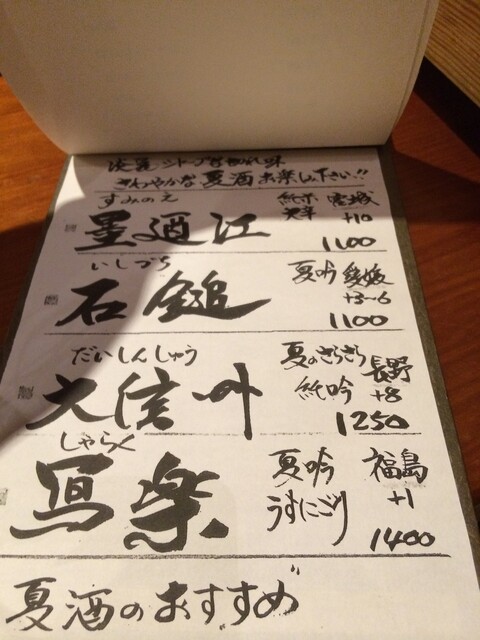 淡麗シャープな切れ味
さわやかな夏酒お楽し下さい!!
すみのえ
墨廼江
純米 宮城
+10
1100
いしづち
石鎚
夏吟 愛媛
+3~6
1100
だいしんしゅう
大信州
夏のさらさら 長野
純吟 +8
1250
しゃらく
写楽
夏吟 福島
うすにごり +1
1400
夏酒のおすすめ